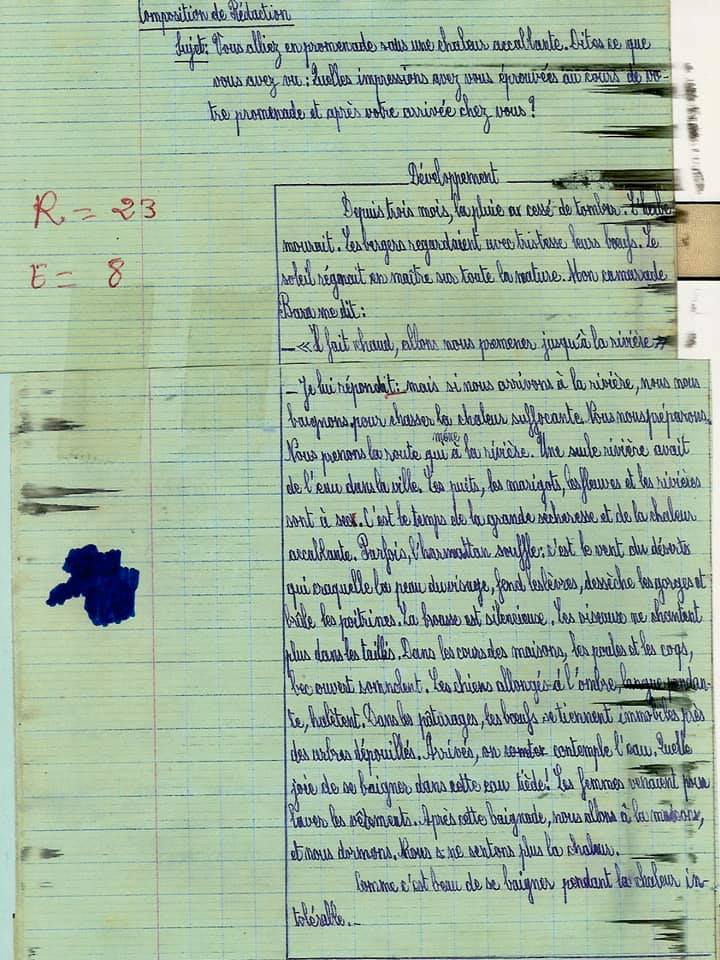 Composition de Rédaction
Sujet: Vous alliez en promenade sous une chaleur accablante. Dites ce que
vous avez vu: Quelles impressions avez vous éprouvées au cours de vo-
tre promenade et après votre arrivée chez vous?
Développement
R = 23
E = 8
Depuis trois mois, la pluie a cessé de tomber. L'herbe
mourait. Les bergers regardaient avec tristesse leurs bœufs. Le
soleil régnait en maître sur toute la nature. Mon camarade
Bara me dit:
- «Il fait chaud, allons nous promener jusqu'à la rivière»
- Je lui répondit: mais si nous arrivons à la rivière, nous nous
baignons pour chasser la chaleur suffocante. Nous nous préparons.
Nous prenons la route qui mène à la rivière. Une seule rivière avait
de l'eau dans la ville. Les puits, les marigots, les fleuves et les rivières
sont à sec. C'est le temps de la grande sécheresse et de la chaleur
accablante. Parfois, l'harmattan souffle: c'est le vent du déserts
qui craquelle la peau du visage, fend les lèvres, dessèche les gorges et
brûle les poitrines. La brousse est silencieuse. Les oiseaux ne chantent
plus dans les taillis. Dans les cours des maisons, les poules et les coqs,
bec ouvert somnolent. Les chiens allongés à l'ombre, langue pendan-
te, halètent. Dans les pâturages, les bœufs se tiennent immobiles près
des arbres dépouillés. Arrivés, on contemple l'eau. Quelle
joie de se baigner dans cette eau tiède! Les femmes venaient pour
laver les vêtements. Après cette baignade, nous allons à la maisons,
et nous dormons. Nous ne sentons plus la chaleur.
Comme c'est beau de se baigner pendant la chaleur in-
tolérable.